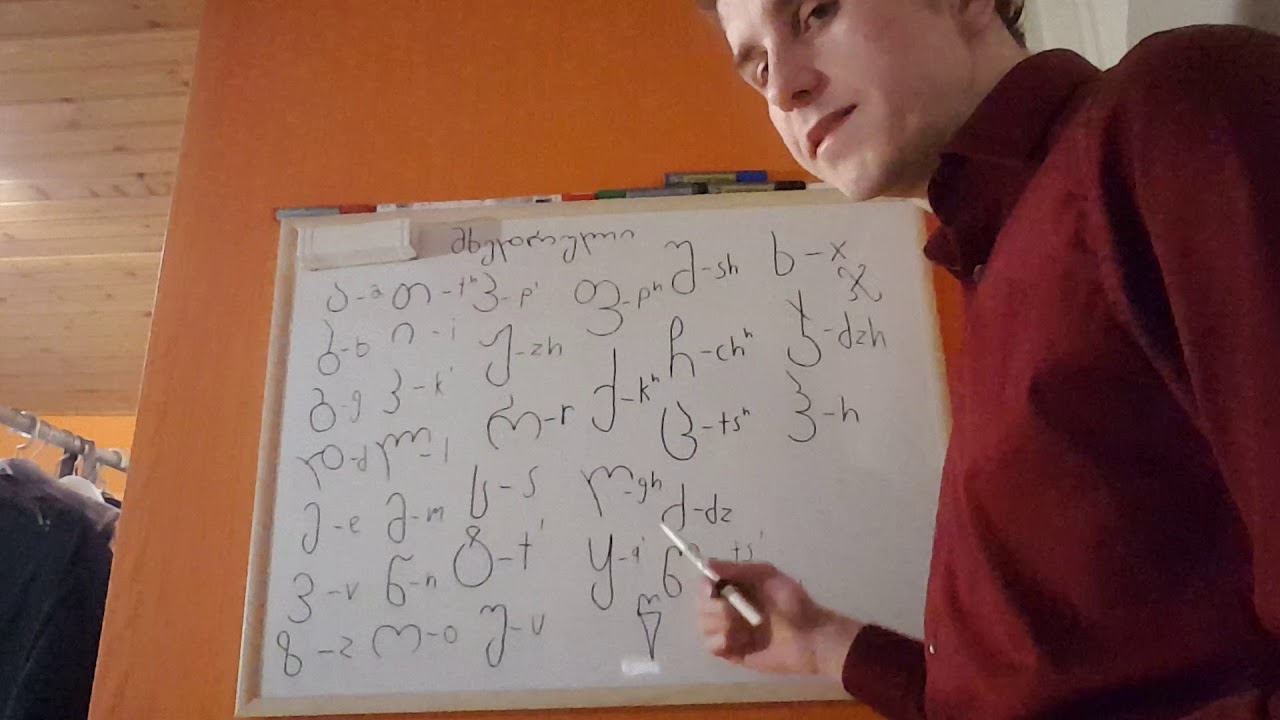 მხედრული
ა-a
ბ-b
გ-g
დ-d
ე-e
ვ-v
ზ-z
თ-tʰ
ი-i
კ-k'
ლ-l
მ-m
ნ-n
ო-o
პ-p'
ჟ-zh
რ-r
ს-s
ტ-t'
უ-u
ფ-pʰ
ქ-kʰ
ღ-gh
ყ-q'
შ-sh
ჩ-chʰ
ც-tsʰ
ძ-dz
წ-ts'
ხ-x
χ
ჯ-dzh
ჰ-h